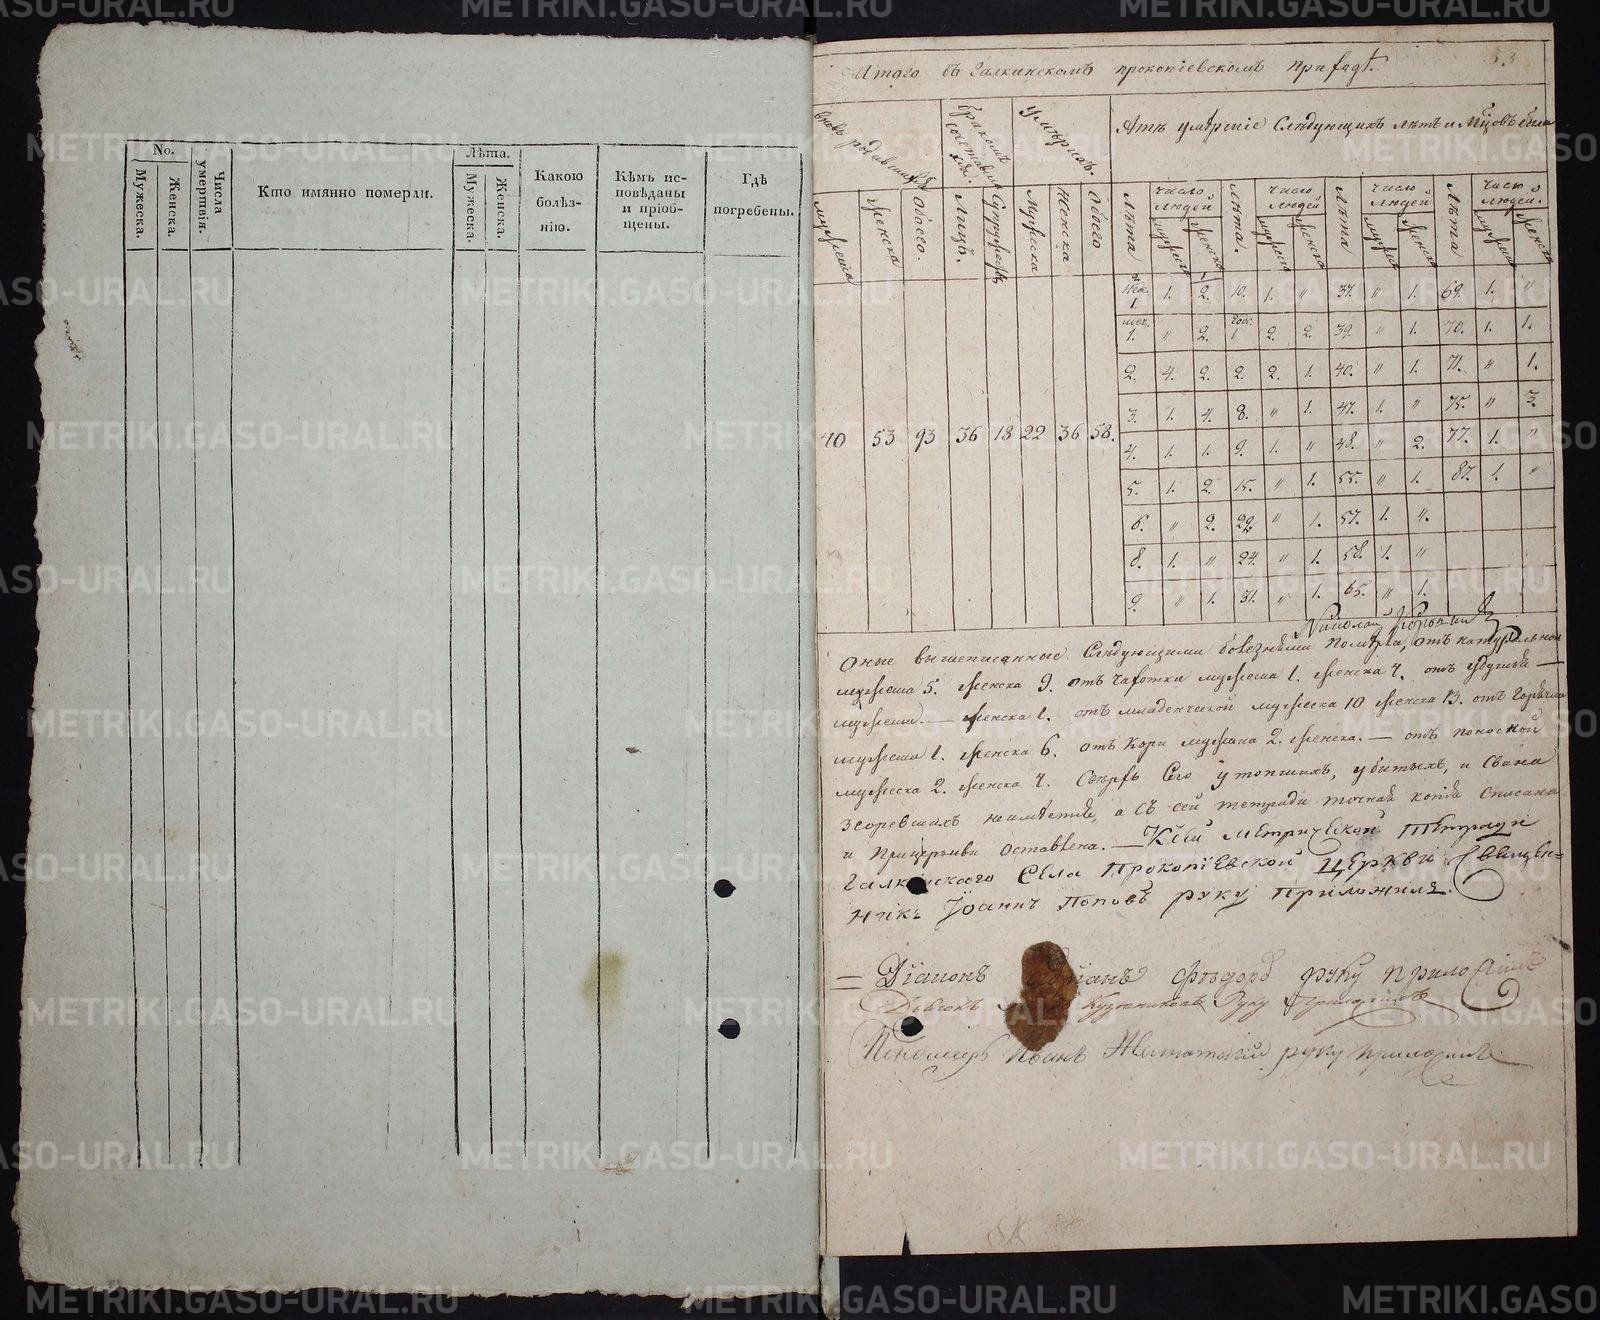 No.
Мужеска.
Женска.
Числа умертвія.
Кто имянно померли.
Лѣта.
Мужеска.
Женска.
Какою болѣз-
нію.
Кѣмъ ис-
повѣданы
и пріоб-
щены.
Гдѣ
погребены.
53
Итого въ Галкинскомъ прокопіевскомъ
вновь родившихся
бракомъ сочетавшихся
умерших
Лѣтъ умершіе Слѣдующихъ лѣтъ и
мужеска
женска
Обоего.
Лицъ.
Супружествъ
мужеска
женска
Обоего
Лѣта число людей мужеска женска
Лѣта. число людей мужеска женска
Лѣта число людей мужеска женска
Лѣта число людей. мужеска женска
40 53 93 36 18 22 36 58.
Нед. 1. 1. 2. 10. 1. " 37. " 1. 69. 1. "
мец. 1. " 2. Годъ. 1 2. 2. 39. " 1. 70. 1. 1.
2. 4. 2. 2. 2. 1. 40. " 1. 71. " 1.
3. 1. 4. 8. " 1. 47. 1. " 75. " 3.
4. 1. 1. 9. 1. " 48. " 2. 77. 1. "
5. 1. 2. 15. " 1. 55. " 1. 87. 1. "
6. " 2. 22. " 1. 57. 1. "
8. 1. " 24. " 1. 58. 1. "
9. " 1. 31. " 1. 65. " 1.
Николай
Оные вышеписанные Слѣдующими болезньми Померли, отъ натуральной
мужеска 5. женска 9. отъ чахотки мужеска 1. женска 4. отъ удушья —
мужеска — женска 1. отъ младенческой мужеска 10 женска 13. отъ Горячки
мужеска 1. женска 6. отъ Кори мужеска 2. женска. — отъ поносной
мужеска 2. женска 4. Сверхъ Сего утопших, убитыхъ, и
згоревшихъ неимѣется, а съ сей тетради точная копія Списана
и Прицеркви Оставлена. — К сей метрической Тетради
Галкинскаго Села Прокопіевской Церкви Священ=
никъ Іоаннъ Поповъ руку приложилъ.
= Діаконъ Ѳедоръ руку приложилъ
Дьячокъ Руку Приложилъ
Пономарь Иванъ руку приложилъ
METRIKI.GASO-URAL.RU